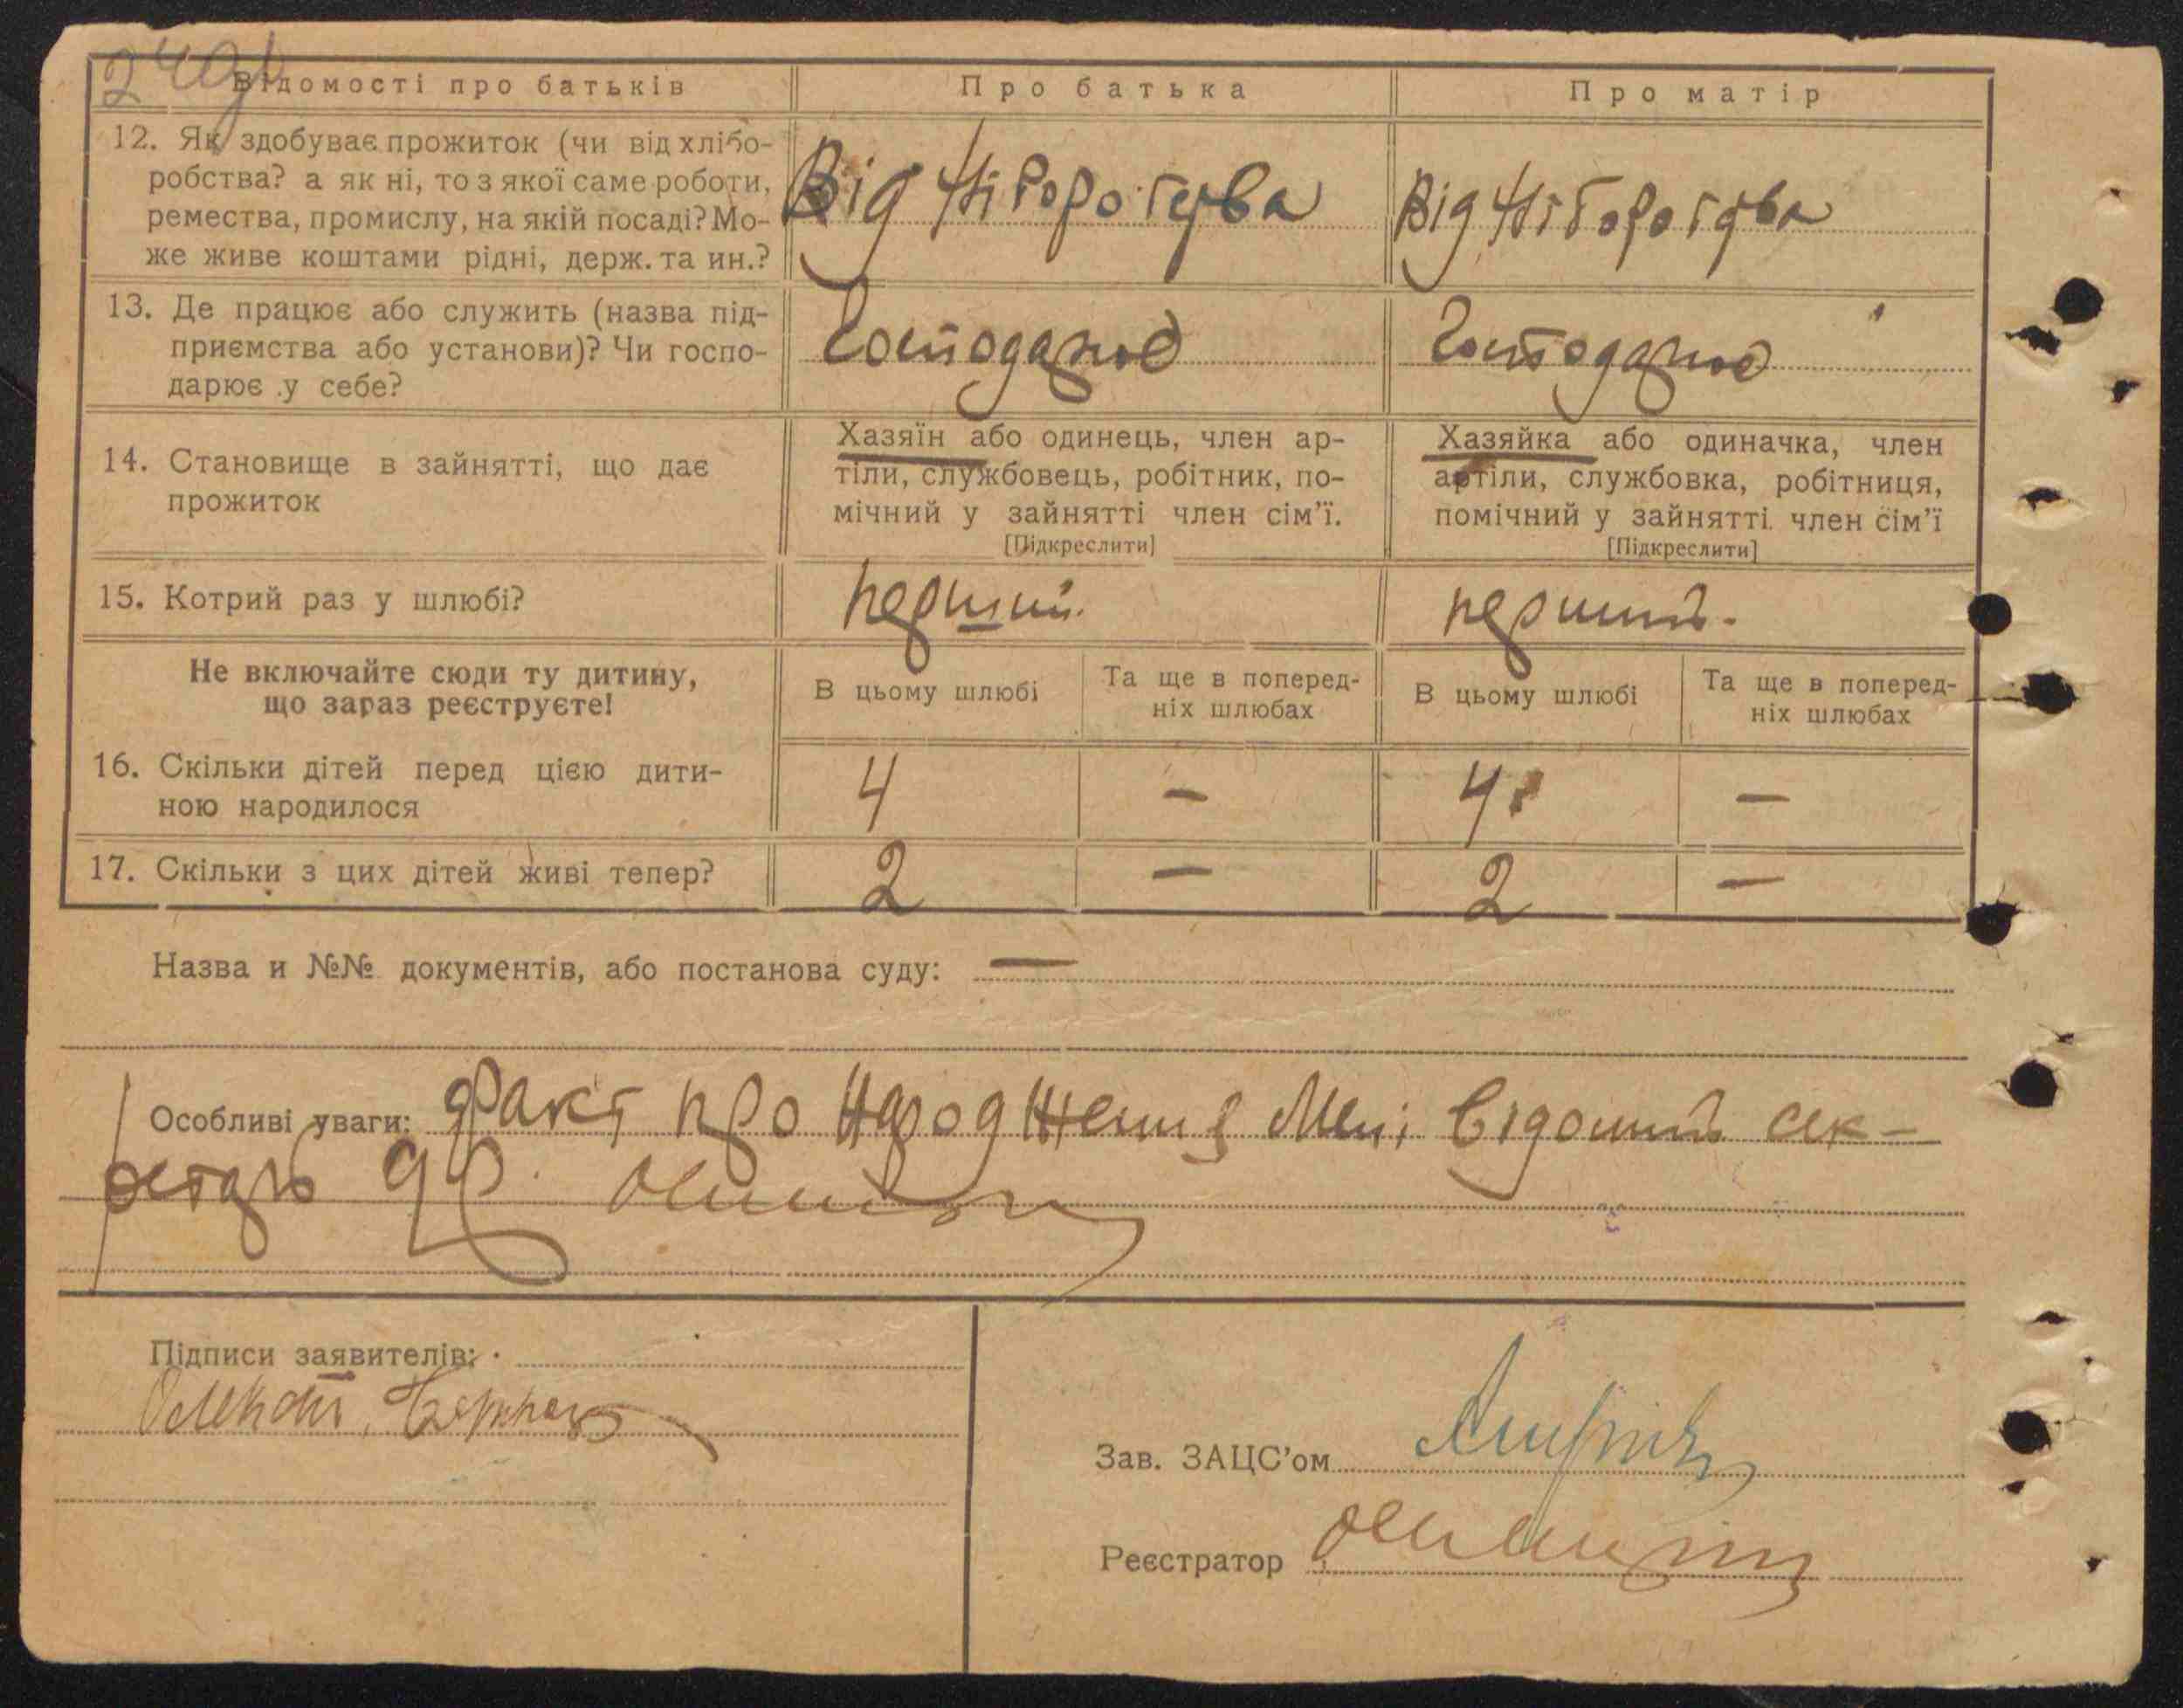 Відомості про батьків
Про батька
Про матір
12. Як здобуває прожиток (чи від хлібо-
робства? а як ні, то з якої саме роботи,
ремества, промислу, на якій посаді? Мо-
же живе коштами рідні, держ. та ин.?
Від
Від
13. Де працює або служить (назва під-
приємства або установи)? Чи госпо-
дарює у себе?
Господарює
Господарює
14. Становище в зайнятті, що дає
прожиток
Хазяїн або одинець, член ар-
тіли, службовець, робітник, по-
мічний у зайнятті член сім'ї.
[Підкреслити]
Хазяйка або одиначка, член
артіли, службовка, робітниця,
помічний у зайнятті член сім'ї
[Підкреслити]
15. Котрий раз у шлюбі?
перший.
перший.
Не включайте сюди ту дитину,
що зараз реєструєте!
В цьому шлюбі
Та ще в поперед-
ніх шлюбах
В цьому шлюбі
Та ще в поперед-
ніх шлюбах
16. Скільки дітей перед цією дити-
ною народилося
4 — 4 —
17. Скільки з цих дітей живі тепер?
2 — 2 —
Назва и №№ документів, або постанова суду: —
Особливі уваги: Факт про народження Мені відомий сек-
ретарь
Підписи заявителів:
Зав. ЗАЦС'ом
Реєстратор